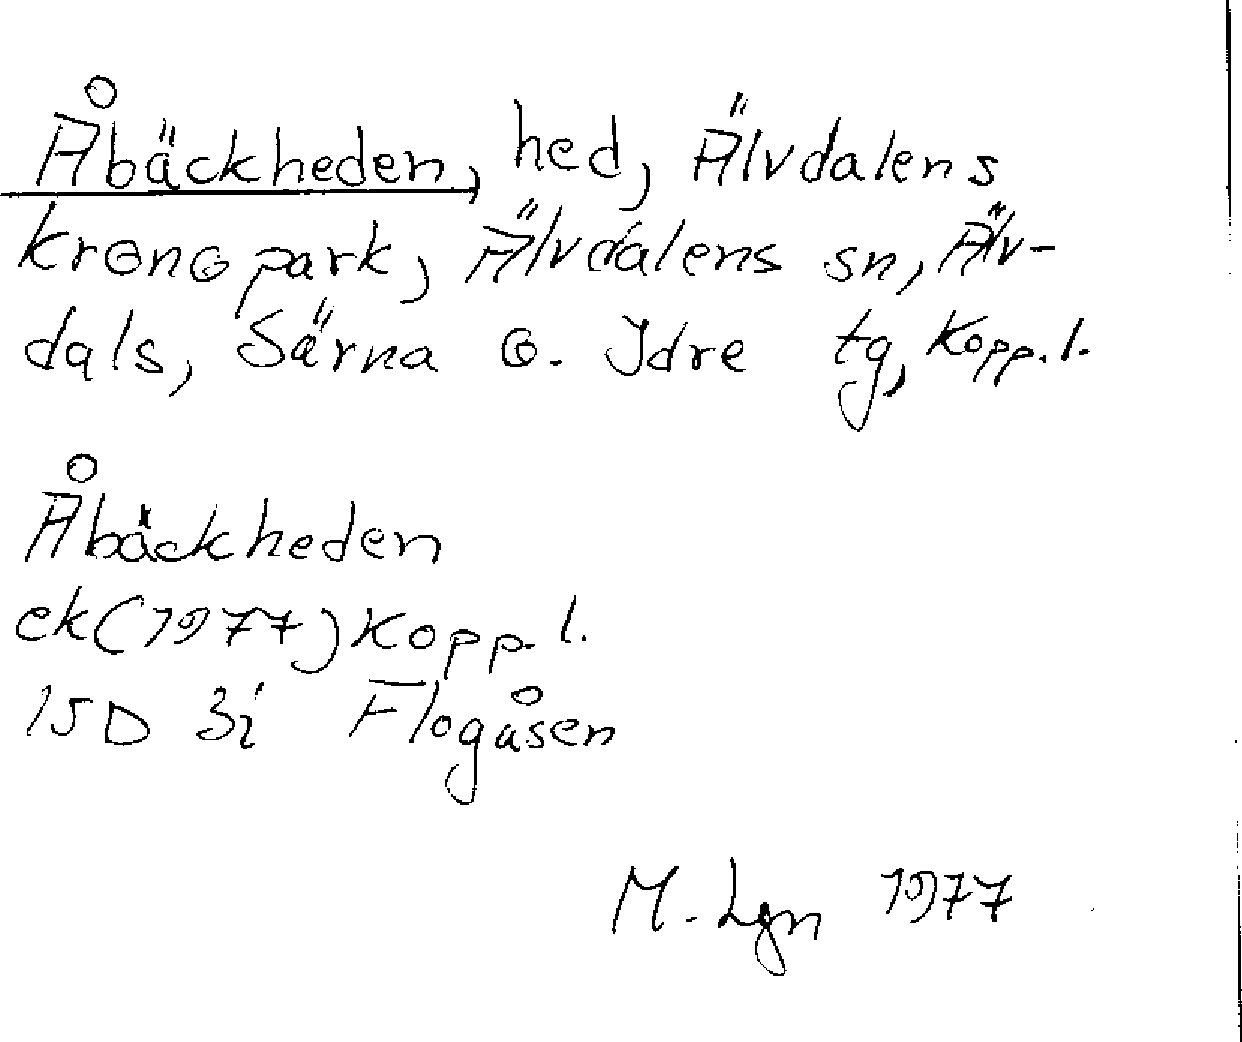 Åbäckheden, hed, Älvdalens
kronopark, Älvdalens sn, Älv-
dals, Särna o. Idre tg, Kopp. l.
Åbäckheden
ek (1977) Kopp. l.
15D 3i Flogåsen
M. Lgn 1977